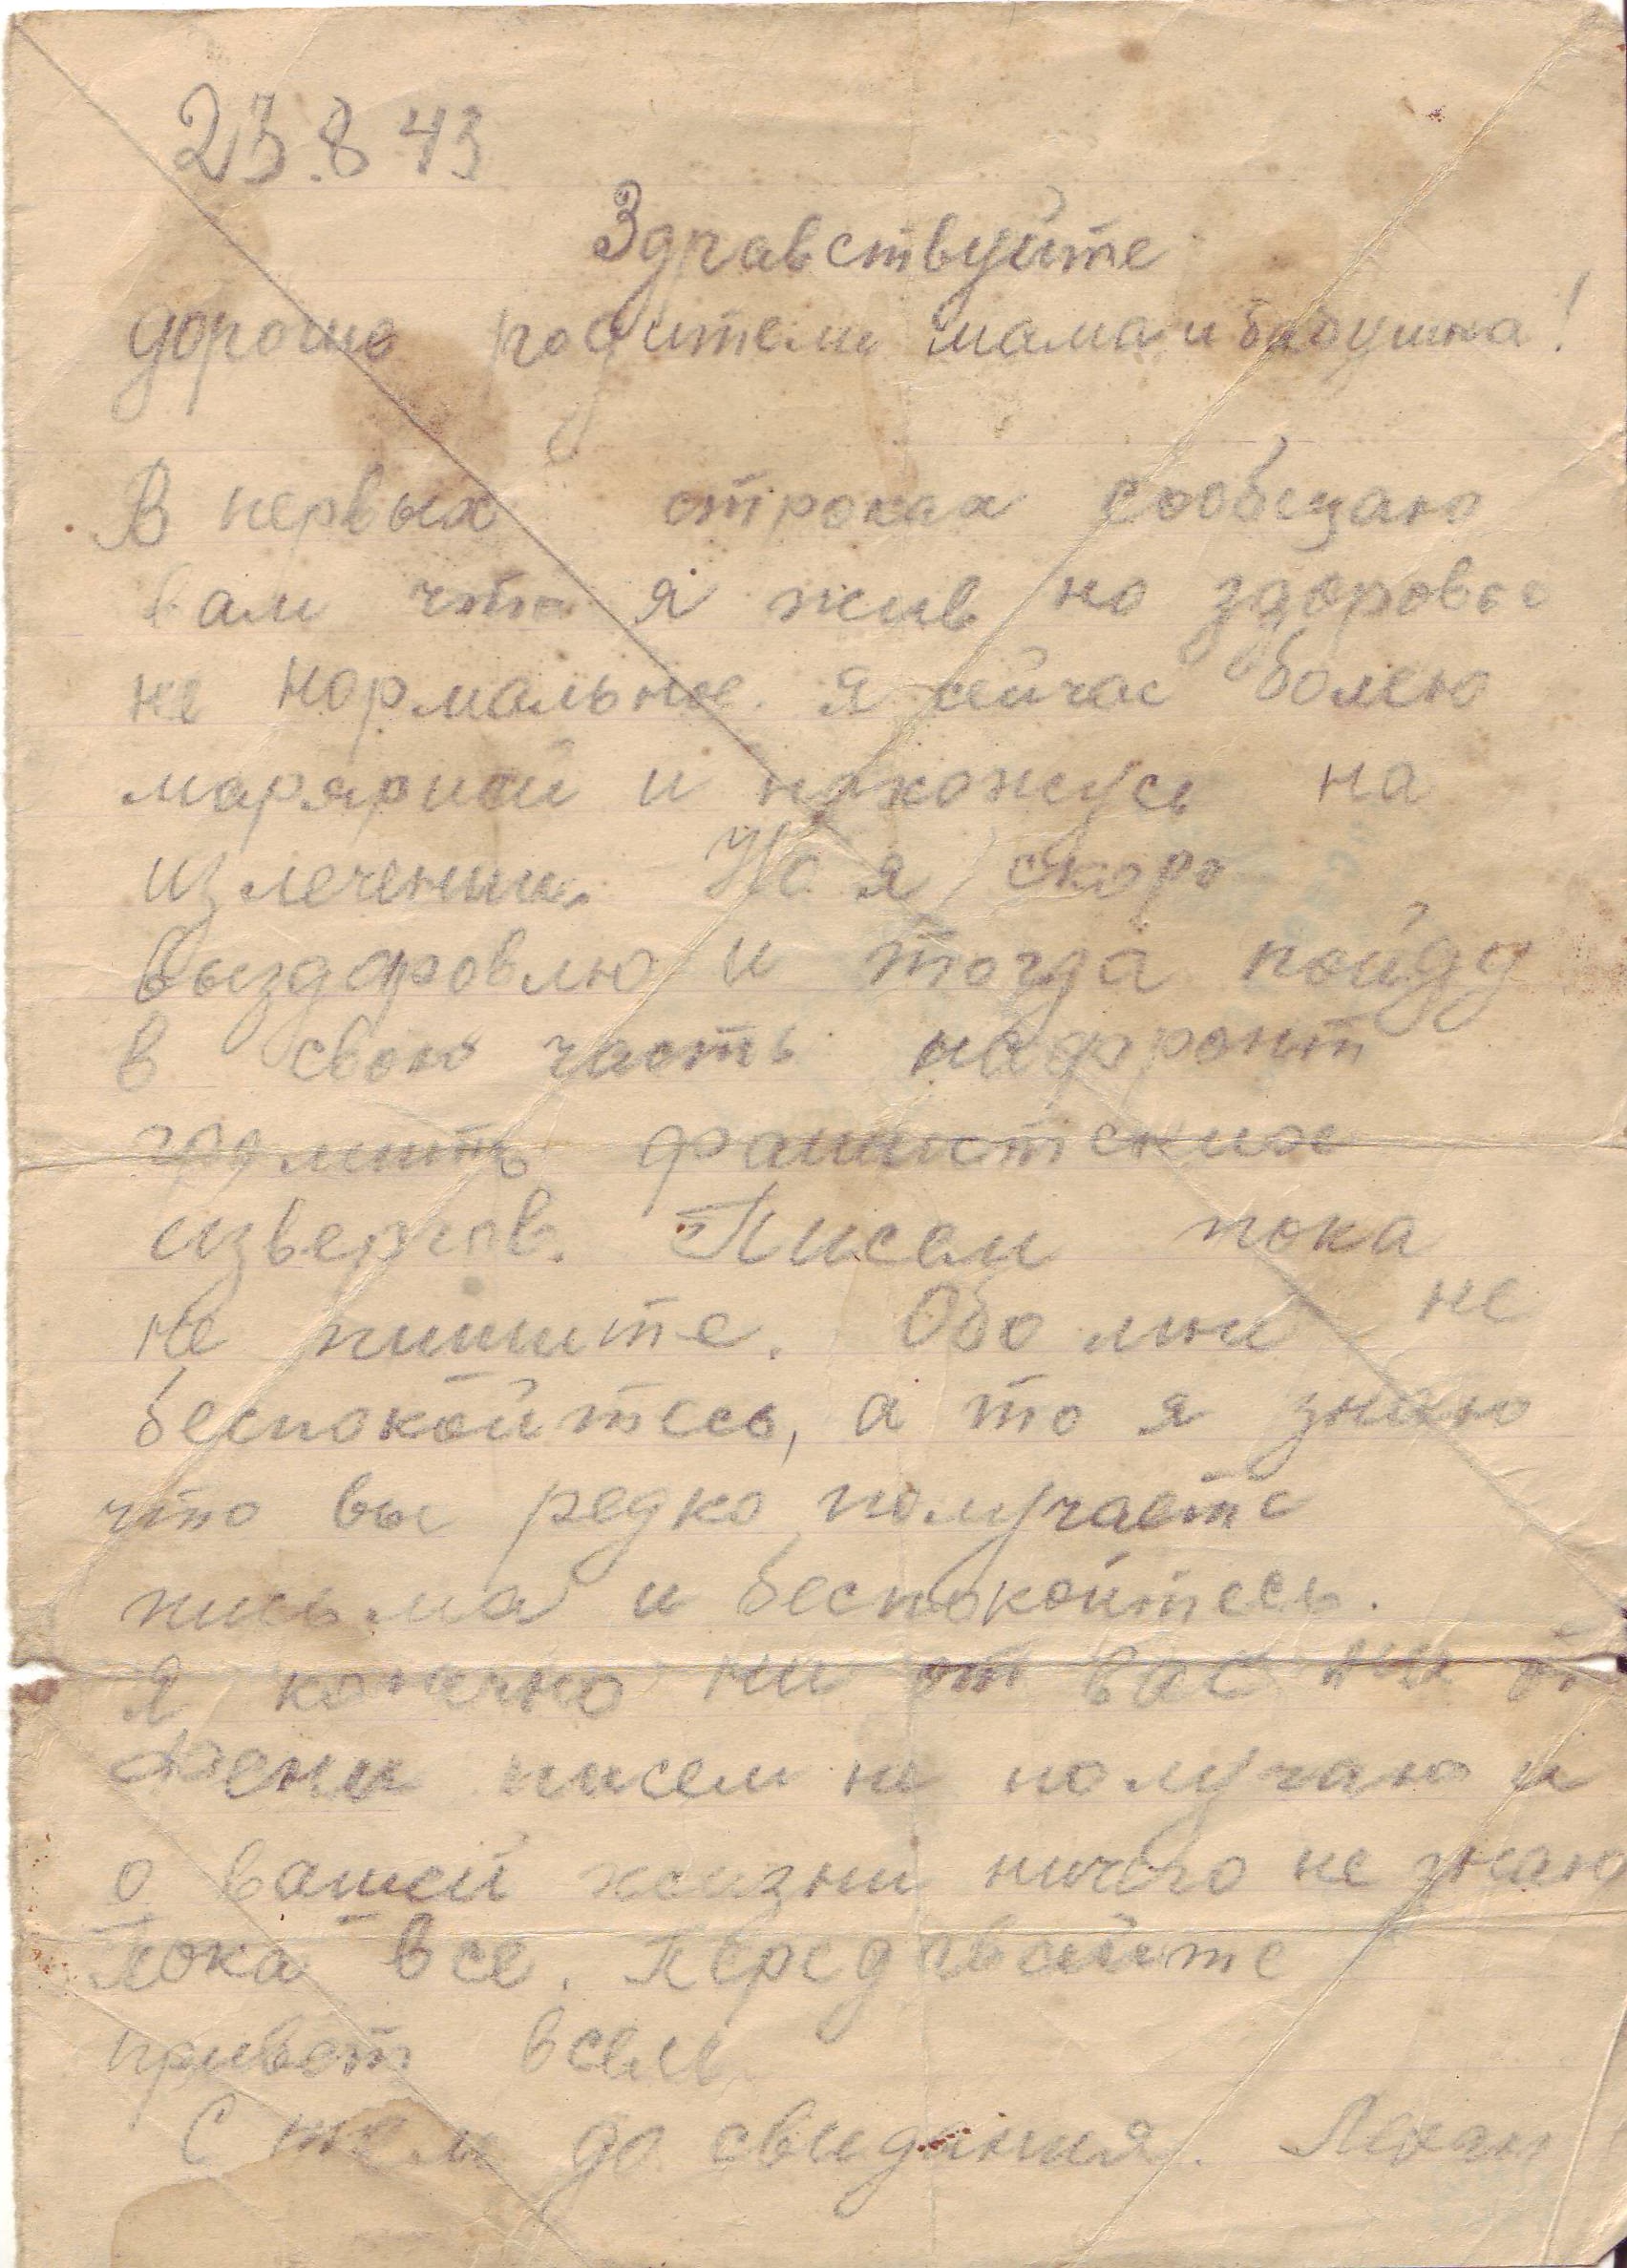 23.8 43
Здравствуйте
дорогие родители мама и бабушка!
В первых строках сообщаю
вам что я жив но здоровье
не нормальное. Я сейчас болею
марярией и нахожусь на
излечении. Но я скоро
выздоровлю и тогда пойду
в свою часть на фронт
громить фашистских
извергов. Писем пока
не пишите. Обо мне не
беспокойтесь, а то я знаю
что вы редко получаете
письма и беспокойтесь.
Я конечно ни от вас ни от
Жени писем не получаю и
о вашей жизни ничего не знаю
Пока все. Передавайте
привет всем
С тем до свидания.